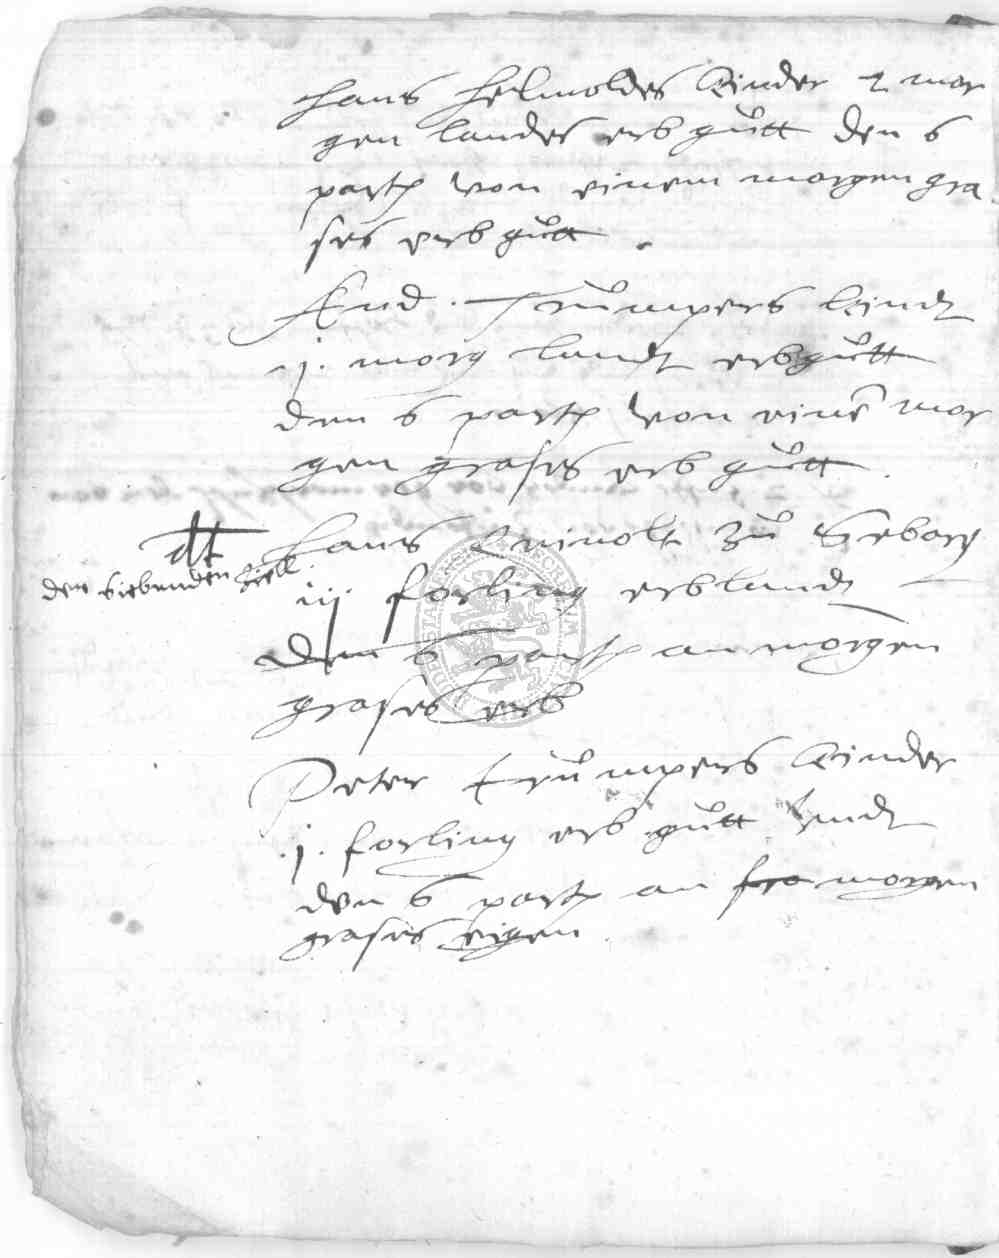 Hans Helmoldes Kinder 2 mor
gen landes erb gůtt den 6
parth von einem morgen gra
ses erb gůtt .
And. Trůmpers kindt
j. morg landt erbgůtt
den 6 parth von eine mor
gen grases erb gůtt
dt
den siebenden Hans zů Seborg
iij forling erblandt
den 6 parth an morgen
grases erb
Peter Trůmpers Kinder
.j. forling erb gůtt vndt
den 6 parth an morgen
grases eigen